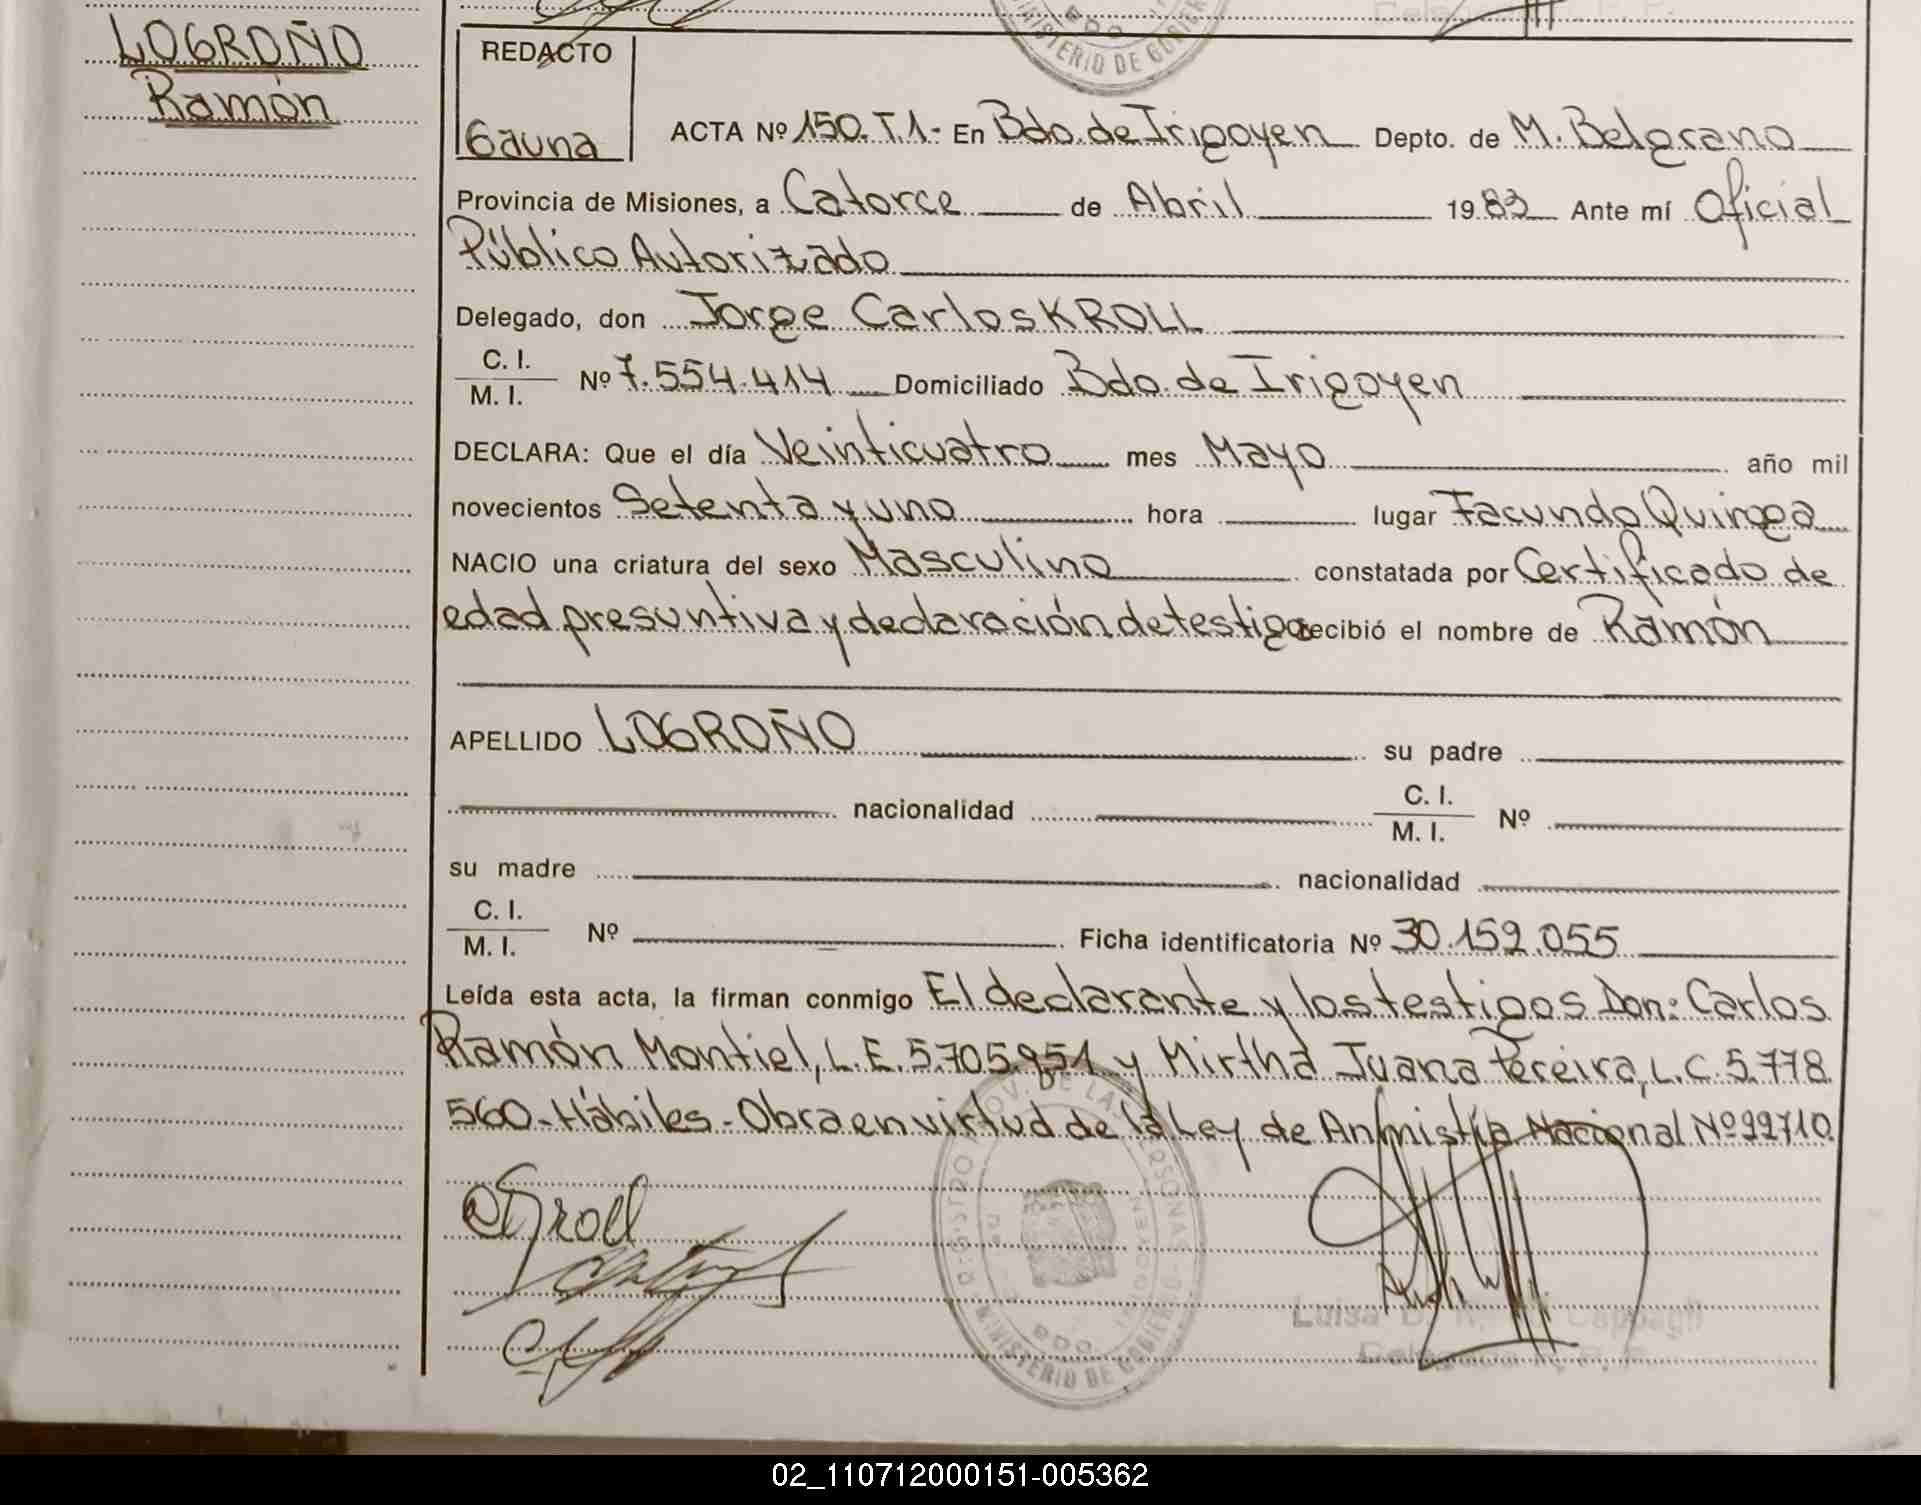 LOGROÑO
Ramón
MINISTERIO DE GOBIER
REDACTO
Gauna
ACTA Nº 150.T.1.- En Bdo. de Irigoyen Depto. de M. Belgrano
Provincia de Misiones, a Catorce de Abril 1983 Ante mí Oficial
Público Autorizado
Delegado, don Jorge Carlos KROLL
C. I.
M. I.
Nº 7.554.414 Domiciliado Bdo. de Irigoyen
DECLARA: Que el día Veinticuatro mes Mayo año mil
novecientos Setenta y uno hora lugar Facundo Quiroga
NACIO una criatura del sexo Masculino constatada por Certificado de
edad presuntiva y declaración de testigo recibió el nombre de Ramón
APELLIDO LOGROÑO su padre
nacionalidad C. I.
M. I. Nº
su madre nacionalidad
C. I.
M. I.
Nº Ficha identificatoria Nº 30.152.055
Leída esta acta, la firman conmigo El declarante y los testigos Don: Carlos
Ramón Montiel, L.E. 5.705.951 y Mirtha Juana Pereira, L.C. 5.778.
560-Hábiles-Obra en virtud de la Ley de Anmistía Nacional Nº 22710.
Kroll
MINISTERIO DE GOBIERNO
Luisa
02_110712000151-005362